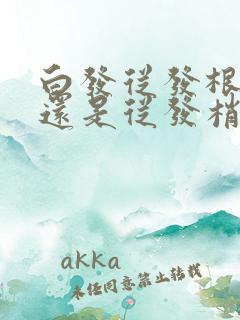 白發從發根
還是從發梢
akka
未經同意禁止轉載